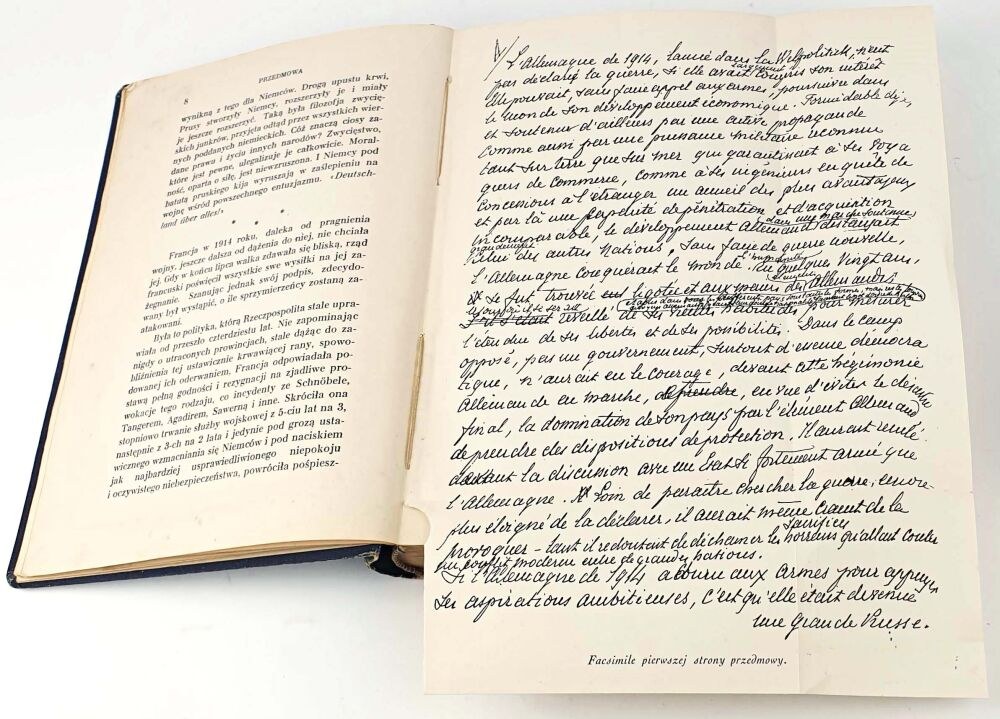 PRZEDMOWA
8
wyniką z tego dla Niemców. Drogą upustu krwi,
Prusy stworzyły Niemcy, rozszerzyły je i miały
je jeszcze rozszerzyć. Taką była filozofja zwycię-
skich junkrów, przyjęta odtąd przez wszystkich wier-
nych poddanych niemieckich. Cóż znaczą ciosy za-
dane prawu i życiu innych narodów? Zwycięstwo,
które jest pewne, ulegalizuje je całkowicie. Moral-
ność, oparta o siłę, jest niewzruszona. I Niemcy pod
batutą pruskiego kija wyruszają w zaślepieniu na
wojnę wśród powszechnego entuzjazmu. «Deutsch-
land über alles!»
* * *
Francja w 1914 roku, daleka od pragnienia
wojny, jeszcze dalsza od dążenia do niej, nie chciała
jej. Gdy w końcu lipca walka zdawała się bliską, rząd
francuski poświęcił wszystkie swe wysiłki na jej za-
żegnanie. Szanując jednak swój podpis, zdecydo-
wany był wystąpić, o ile sprzymierzeńcy zostaną za-
atakowani.
Była to polityka, którą Rzeczpospolita stale upra-
wiała od przeszło czterdziestu lat. Nie zapominając
nigdy o utraconych prowincjach, stale dążąc do za-
bliźnienia tej ustawicznie krwawiącej rany, spowo-
dowanej ich oderwaniem. Francja odpowiadała po-
stawą pełną godności i rezygnacji na zjadliwe pro-
wokacje tego rodzaju, co incydenty ze Schnöbele,
Tangerem, Agadirem, Sawerną i inne. Skróciła ona
stopniowo trwanie służby wojskowej z 5-ciu lat na 3,
następnie z 3-ch na 2 lata i jedynie pod grozą usta-
wicznego wzmacniania się Niemców i pod naciskiem
jak najbardziej usprawiedliwionego niepokoju
i oczywistego niebezpieczeństwa, powróciła pośpiesz-
L'Allemagne de 1914, lancée dans la Weltpolitik, n'eut
pas déclaré la guerre, si elle avait largement compris son intérêt
Elle pouvait, sans faire appel aux armes, poursuivre dans
le monde son développement économique. Formidable déjà,
et soutenu d'ailleurs par une active propagande
comme aussi par une puissance militaire reconnue
tant sur terre que sur mer qui garantissait à ses voya
geurs de commerce, comme à ses ingénieurs en quête de
Concessions à l'étranger un accueil des plus avantageux
et par là une capacité de pénétration et d'acquisition
incomparable, le développement Allemand dans une marche soutenue distançait
grandement celui des autres nations, sans faire de guerre nouvelle,
l'Allemagne conquérait le monde. En quelques vingt ans,
se fut trouvée ligotée et aux mœurs des Allemands
réveillé de ses vieilles habitudes pour mesurer
l'étendue de ses libertés et de ses possibilités. Dans le camp
opposé, pas un gouvernement, surtout d'essence démocra
tique, n'aurait eu le courage, devant cette hégémonie
Allemande en marche, en vue d'éviter le désastre
final, la domination de son pays par l'élément Allemand
de prendre des dispositions de protection. Il aurait reculé
devant la discussion avec un Etat si fortement armé que
l'Allemagne. Loin de paraître chercher la guerre, encore
plus éloigné de la déclarer, il aurait même craint de la
provoquer – tant il redoutait de déchaîner les sacrifices horreurs qu'allait coûter
un conflit moderne entre de grandes nations.
Si l'Allemagne de 1914 a couru aux armes pour appuyer
ses aspirations ambitieuses, c'est qu'elle était devenue
une grande Prusse.
Facsimile pierwszej strony przedmowy.